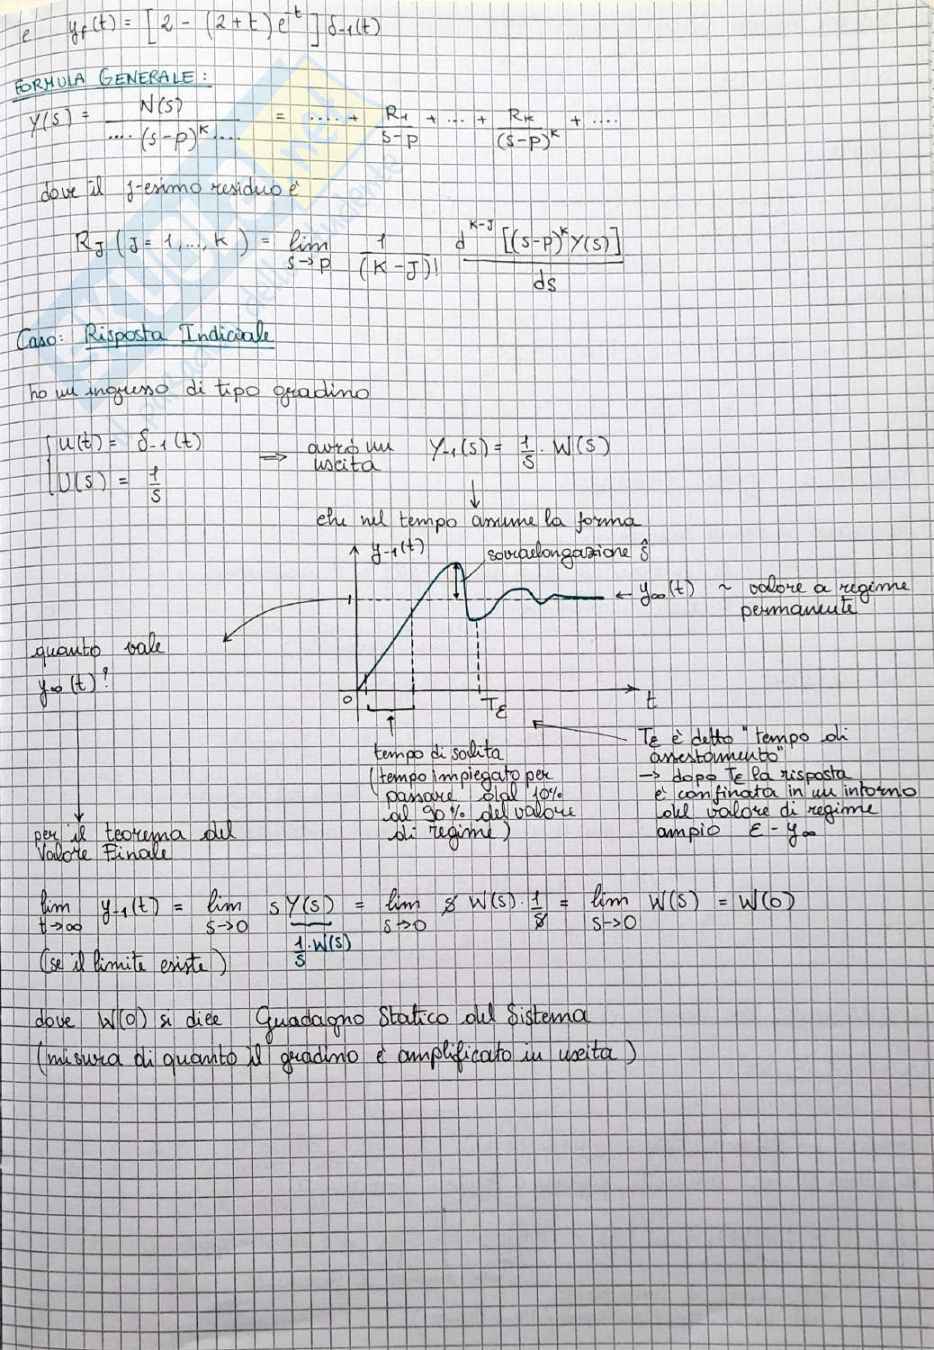 e y_f(t) = [2 - (2+t)e^-t] δ-1(t)
FORMULA GENERALE:
Y(s) = N(s) / ....(s-p)^k.... = .... + R1/(s-p) + ... + Rk/(s-p)^k + ....
dove il j-esimo residuo è
R_J (J = 1,..., k) = lim s→p 1/(K-J)! d^(K-J) [(s-p)^k Y(s)] / ds
Caso: Risposta Indiciale
ho un ingresso di tipo gradino
{ u(t) = δ-1(t)
U(s) = 1/s
⇒ avrò un uscita Y-1(s) = 1/s · W(s)
↓
che nel tempo assume la forma
y-1(t)
sovraelongazione ŝ
1
← y∞(t) ~ valore a regime
permanente
quanto vale
y∞(t)?
0
Tε
t
tempo di salita
(tempo impiegato per
passare dal 10%
al 90% del valore
di regime)
Tε è detto "tempo di
assestamento"
→ dopo Tε la risposta
è confinata in un intorno
del valore di regime
ampio ε - y∞
per il teorema del
Valore Finale
lim t→∞ y-1(t) = lim s→0 s Y(s) = lim s→0 s W(s) · 1/s = lim s→0 W(s) = W(0)
1/s · W(s)
(se il limite esiste)
dove W(0) si dice Guadagno Statico del Sistema
(misura di quanto il gradino è amplificato in uscita)